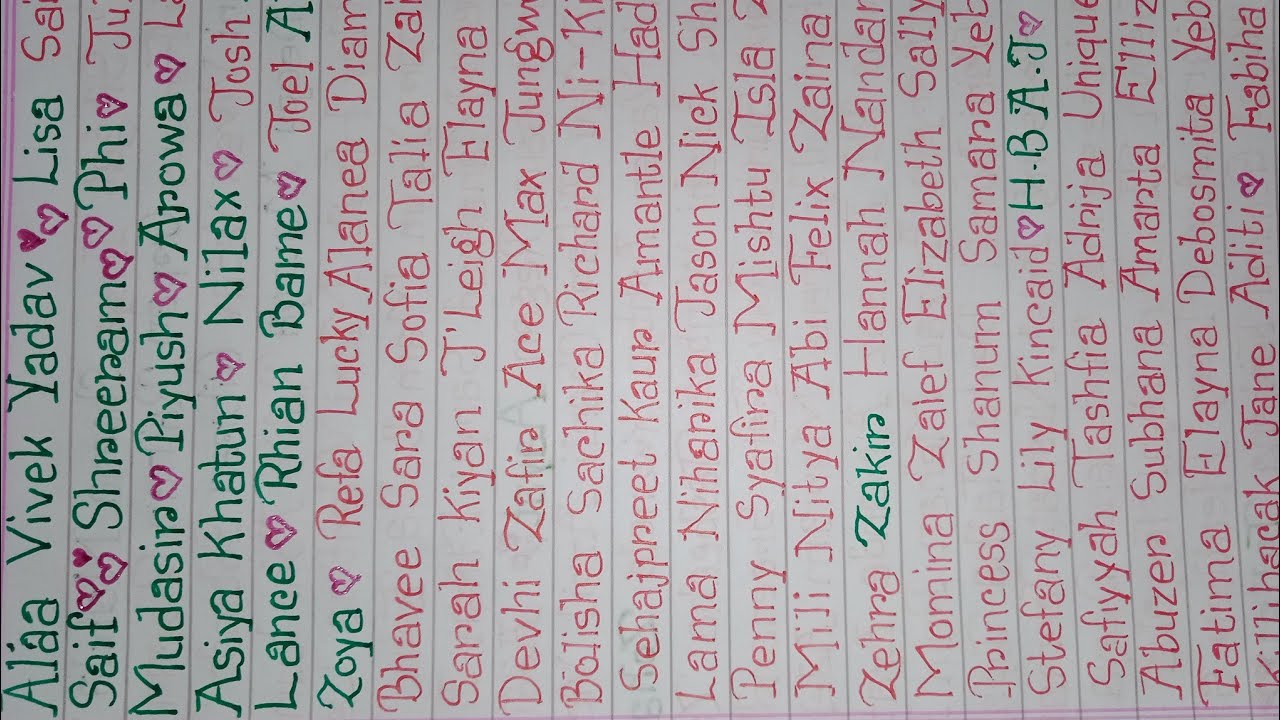 Alaa Vivek Yadav Lisa
Saif Shreerama Phi
Mudasir Piyush Arowa
Asiya Khatun Nilax Josh
Lance Rhian Bame Joel
Zoya Refa Lucky Alanea
Bhavee Sara Sofia Talia
Sarah Kiyan J'Leigh Elayna
Devhi Zafir Ace Max
Bolisha Sachika Richard
Sehajpreet Kaur Amantle
Lama Niharika Jason Nick
Penny Syafira Mishtu Isla
Mili Nitya Abi Felix Zaina
Zehra Zakir Hannah
Momina Zaief Elizabeth Sally
Princess Shanum Samara
Stefany Lily Kincaid H.B.A.J
Safiyyah Tashfia Adrija Unique
Abuzer Subhana Amarta
Fatima Elayna Debosmita
Jane Aditi Fabiha